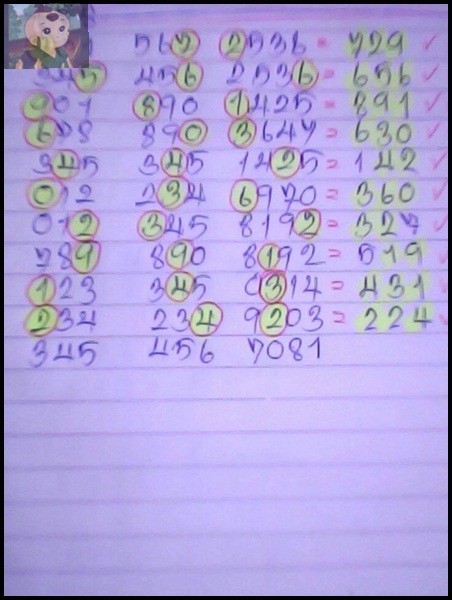 567 2536 = 729 ✓
345 456 2536 = 656 ✓
901 890 1425 = 891 ✓
678 890 3647 = 630 ✓
345 345 1425 = 142 ✓
012 234 6970 = 360 ✓
012 345 8192 = 327 ✓
789 890 8192 = 519 ✓
123 345 0314 = 431 ✓
234 234 9203 = 224 ✓
345 456 7081